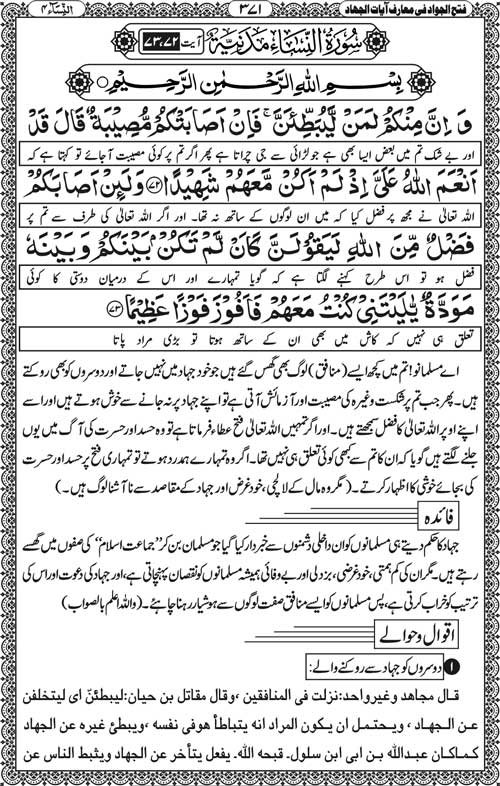 فتح الجواد فی معارف آیات الجهاد
۳۷۱
النِّسَآء ۴
سُورَةُ النِّسَآءِ مَدَنِيَّةٌ آیت ۷۲، ۷۳
بِسْمِ اللهِ الرَّحْمٰنِ الرَّحِيْمِ
وَ اِنَّ مِنْكُمْ لَمَنْ لَّيُبَطِّئَنَّ ۚ فَاِنْ اَصَابَتْكُمْ مُّصِيْبَةٌ قَالَ قَدْ
اور بے شک تم میں بعض ایسا بھی ہے جو لڑائی سے جی چراتا ہے پھر اگر تم پر کوئی مصیبت آجائے تو کہتا ہے کہ
اَنْعَمَ اللهُ عَلَىَّ اِذْ لَمْ اَكُنْ مَّعَهُمْ شَهِيْدًا ﴿۷۲﴾ وَلَئِنْ اَصَابَكُمْ
اللہ تعالیٰ نے مجھ پر فضل کیا کہ میں ان لوگوں کے ساتھ نہ تھا۔ اور اگر اللہ تعالیٰ کی طرف سے تم پر
فَضْلٌ مِّنَ اللهِ لَيَقُوْلَنَّ كَاَنْ لَّمْ تَكُنْۢ بَيْنَكُمْ وَ بَيْنَهٗ
فضل ہو تو اس طرح کہنے لگتا ہے کہ گویا تمہارے اور اس کے درمیان دوستی کا کوئی
مَوَدَّةٌ يّٰلَيْتَنِيْ كُنْتُ مَعَهُمْ فَاَفُوْزَ فَوْزًا عَظِيْمًا ﴿۷۳﴾
تعلق ہی نہیں کہ کاش میں بھی ان کے ساتھ ہوتا تو بڑی مراد پاتا
اے مسلمانو! تم میں کچھ ایسے (منافق) لوگ بھی گھس گئے ہیں جو خود جہاد میں نہیں جاتے اور دوسروں کو بھی روکتے
ہیں۔ پھر جب تم پر شکست وغیرہ کی مصیبت اور آزمائش آتی ہے تو اپنے جہاد پر نہ جانے سے خوش ہوتے ہیں اور اسے
اپنے اوپر اللہ تعالیٰ کا فضل سمجھتے ہیں۔ اور اگر تمہیں اللہ تعالیٰ فتح عطاء فرماتا ہے تو وہ حسد اور حسرت کی آگ میں یوں
جلنے لگتے ہیں گویا کہ ان کا تم سے کبھی کوئی تعلق ہی نہیں تھا۔ اگر وہ تمہارے ہمدرد ہوتے تو تمہاری فتح پر حسد اور حسرت
کی بجائے خوشی کا اظہار کرتے۔ (مگر وہ مال کے لالچی، خود غرض اور جہاد کے مقاصد سے نا آشنا لوگ ہیں۔)
فائدہ
جہاد کا حکم دیتے ہی مسلمانوں کو ان داخلی دشمنوں سے خبردار کیا گیا جو مسلمان بن کر ’’جماعت اسلام‘‘ کی صفوں میں گھسے
رہتے ہیں۔ مگر ان کی کم ہمتی، خود غرضی، بزدلی اور بے وفائی ہمیشہ مسلمانوں کو نقصان پہنچاتی ہے، اور جہاد کی دعوت اور اس کی
ترتیب کو خراب کرتی ہے، پس مسلمانوں کو ایسے منافق صفت لوگوں سے ہوشیار رہنا چاہئے۔ (واللہ اعلم بالصواب)
اقوال و حوالے
۱ دوسروں کو جہاد سے روکنے والے:
قال مجاهد وغیر واحد: نزلت فی المنافقین، وقال مقاتل بن حیان: لیبطئنّ ای لیتخلفن
عن الجهاد، ویحتمل ان یکون المراد انه یتباطأ هو فی نفسه، ویبطئ غیره عن الجهاد
کما کان عبدالله بن ابی ابن سلول۔ قبحه الله۔ یفعل یتأخر عن الجهاد ویثبط الناس عن